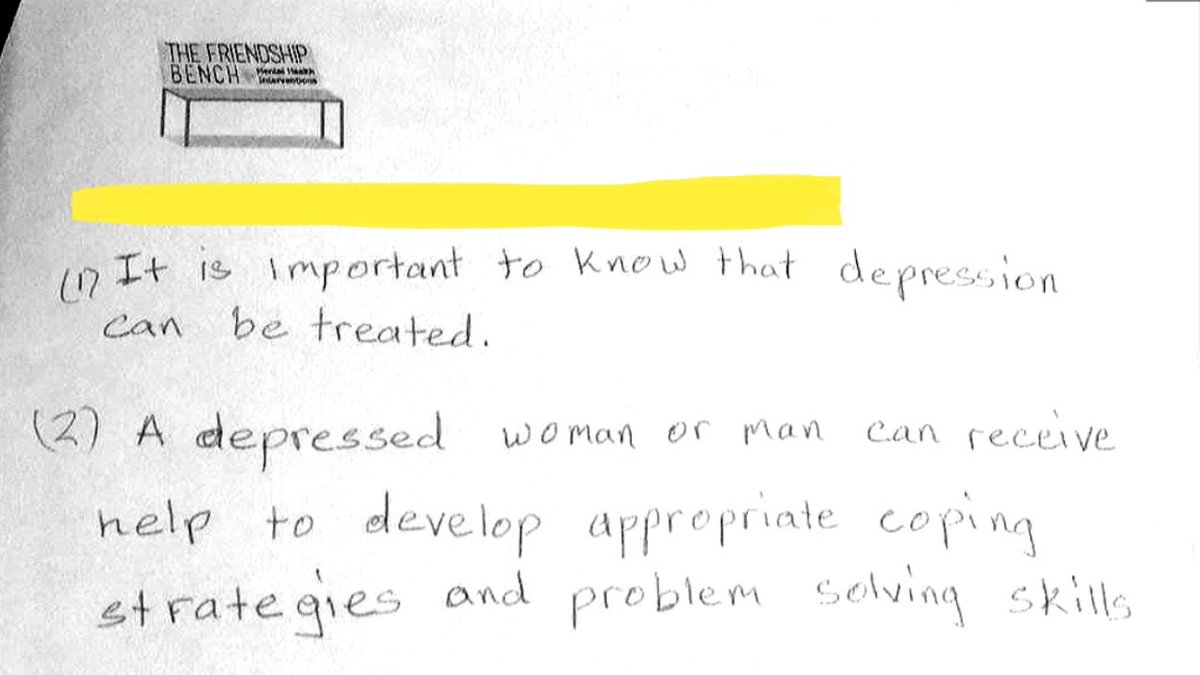 THE FRIENDSHIP
BENCH Mental Health
Interventions
(1) It is important to know that depression
can be treated.
(2) A depressed woman or man can receive
help to develop appropriate coping
strategies and problem solving skills